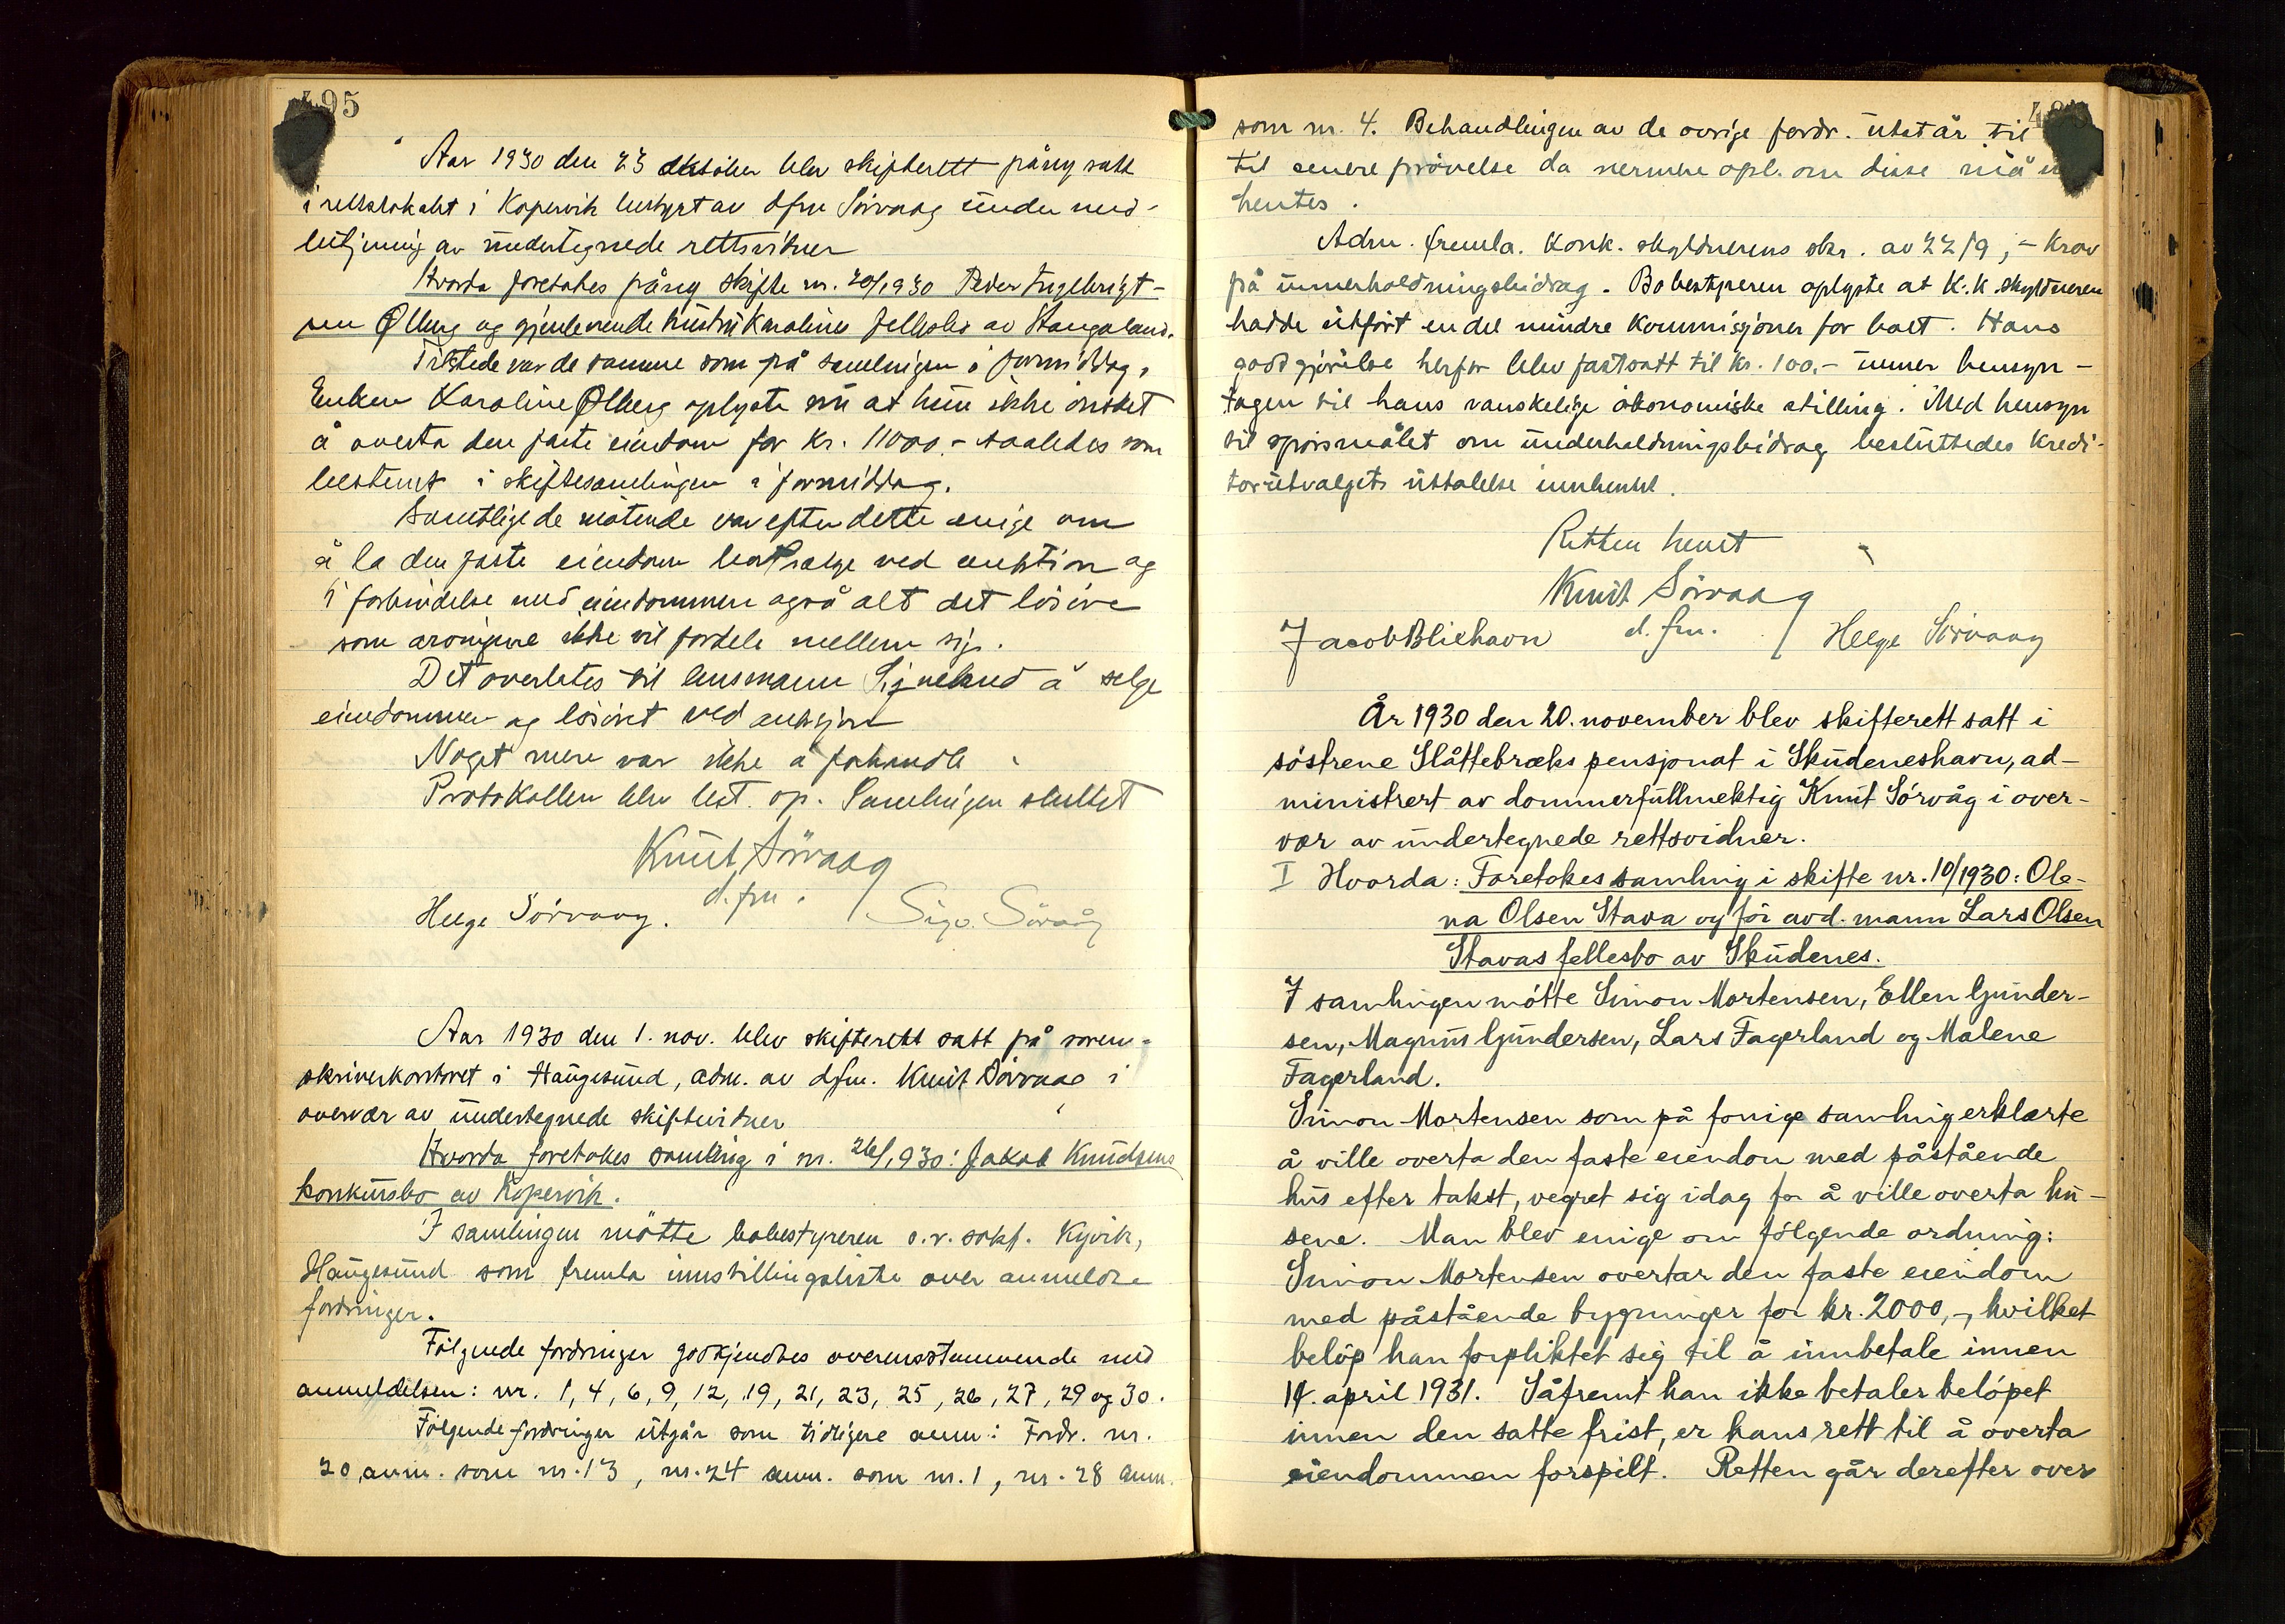 495
Aar 1930 den 23 oktober blev skifterett påny satt
i rettslokalet i Kopervik bestyrt av dfm Sörvaag under med-
betjening av undertegnede rettsvidner
Hvorda foretokes påny skifte nr. 20/1930 Peder Ingebrigt-
sen Ølberg og gjenlevende hustru Karolines fellesbo av Haugaland.
Tilstede var de samme som på samlingen i formiddag.
Enken Karoline Ølberg oplyste nu at hun ikke önsket
å overta den faste eiendom for kr. 11000.- saaledes som
bestemt i skiftesamlingen i formiddag.
Samtlige de mötende var efter dette enige om
å la den faste eiendom bortselge ved auktion og
i forbindelse med eiendommen også alt det lösöre
som arvingene ikke vil fordele mellem sig.
Det overlates til lensmann å selge
eiendommen og lösöret ved auksjon
Noget mere var ikke å forhandle
Protokollen blev lest op. Samlingen sluttet
Knut Sörvaag
d.fm.
Helge Sörvaag. / Sigv. Sörvåg
Aar 1930 den 1. nov. blev skifterett satt på soren-
skriverkontoret i Haugesund, adm. av dfm. Knut Sörvaag i
overvær av undertegnede skiftevidner
Hvorda foretokes samling i nr. 26/1930: Jakob Knudsens
konkursbo av Kopervik.
I samlingen mötte bobestyreren o.r.sakf. Kyvik,
Haugesund som fremla innstillingsliste over anmeldte
fordringer.
Fölgende fordringer godkjendtes overensstemmende med
anmeldelsen: nr. 1, 4, 6, 9, 12, 19, 21, 23, 25, 26, 27, 29 og 30.
Fölgende fordringer utgår som tidligere anm: Fordr. nr.
20 anm. som nr. 13, nr. 24 anm. som nr. 1, nr. 28 anm.
som nr. 4. Behandlingen av de ovrige fordr. utstår til
til senere prövelse da nermere opl. om disse må
hentes.
Adm. fremla. konk. skyldnerens skr. av 22/9, - krav
på underholdningsbidrag. Bobestyreren oplyste at K.k. skyldneren
hadde utfört en del mindre kommisjoner for boet. Hans
godtgjörelse herfor blev fastsatt til kr. 100.- under hensyn-
tagen til hans vanskelige ökonomiske stilling. Med hensyn
til spörsmålet om underholdningsbidrag besluttedes kredi-
torutvalgets uttalelse innhentet.
Retten hevet
Knut Sörvaag
d.fm.
Jacob Bliehavn / Helge Sörvaag
År 1930 den 20. november blev skifterett satt i
söstrene Slåttebræks pensjonat i Skudeneshavn, ad-
ministrert av dommerfullmektig Knut Sörvåg i over-
vær av undertegnede rettsvidner.
I Hvorda: Foretokes samling i skifte nr. 10/1930: Ole-
na Olsen Stava og för avd. mann Lars Olsen
Stavas fellesbo av Skudenes.
I samlingen mötte Simon Mortensen, Ellen Gunder-
sen, Magnus Gundersen, Lars Fagerland og Malene
Fagerland.
Simon Mortensen som på forrige samling erklærte
å ville overta den faste eiendom med påstående
hus efter takst, vegret sig idag for å ville overta hu-
sene. Man blev enige om fölgende ordning:
Simon Mortensen overtar den faste eiendom
med påstående bygninger for kr. 2000,-, hvilket
belöp han forpliktet sig til å innbetale innen
14. april 1931. Såfremt han ikke betaler belöpet
innen den satte frist, er hans rett til å overta
eiendommen forspilt. Retten går derefter over